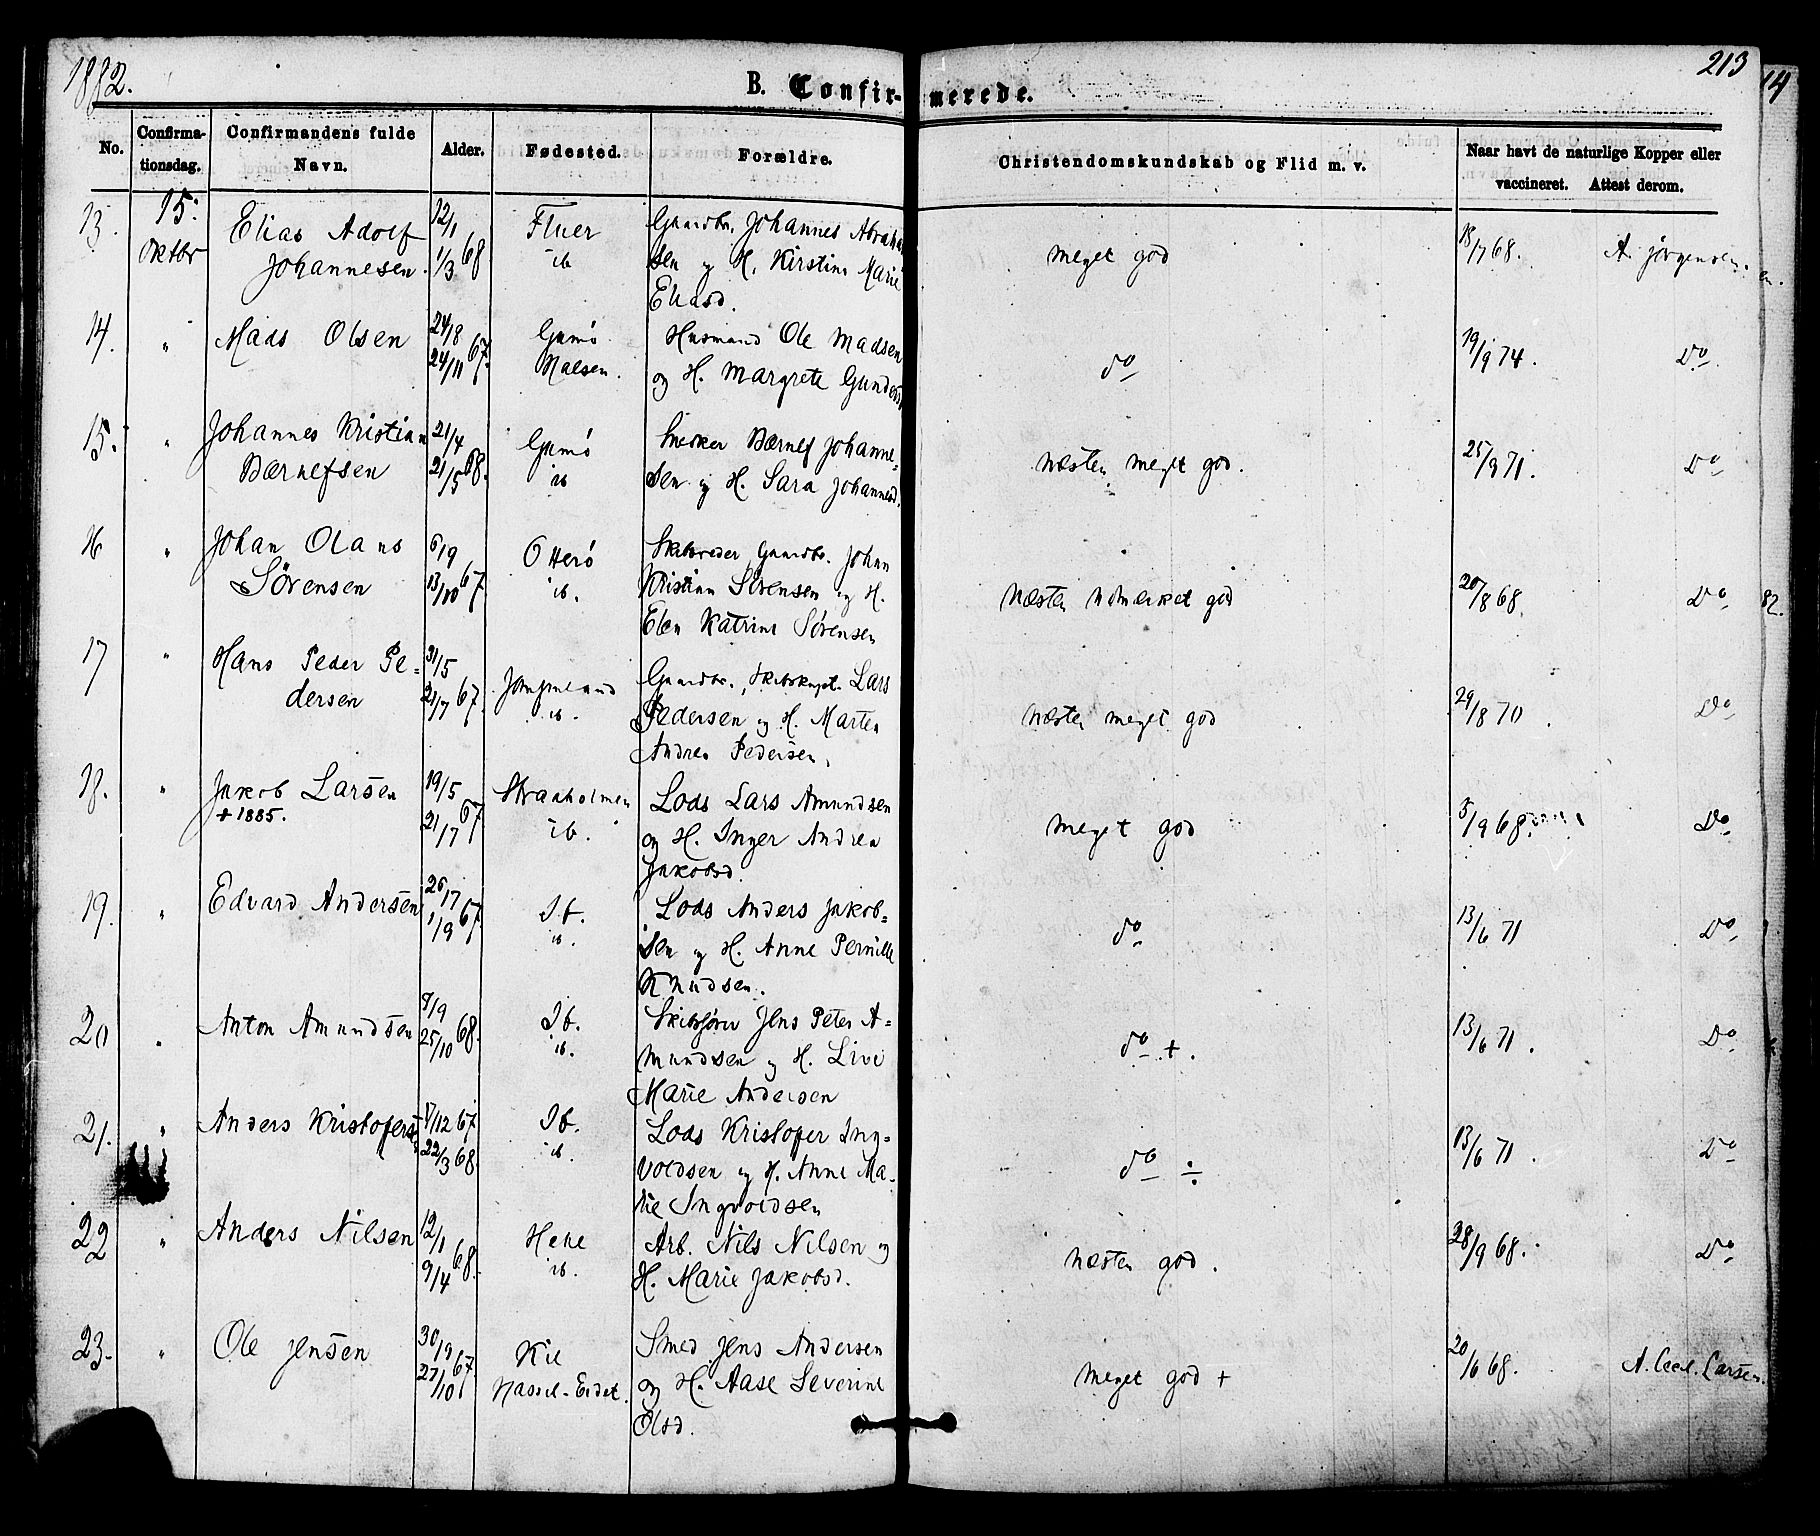 1882.
B. Confir- merede.
213
14
No.
Confirma-
tionsdag.
Confirmandens fulde
Navn.
Alder.
Fødested.
Forældre.
Christendomskundskab og Flid m. v.
Naar havt de naturlige Kopper eller
vaccineret. Attest derom.
13. 15. Elias Adolf 12/1 Fluer Gaardbr. Johannes Abraham
Oktbr Johannesen. 1/3 68 ib sen og H. Kirstine Marie meget god 18/7 68. A. Jørgensen.
Eliasd.
14. " Mads Olsen 24/8 Gumø Husmand Ole Madsen
24/11 67. og H. Margrete Gundersd do 19/9 74. Do.
15. " Johannes Kristian 21/4 Gumø Snedker Bærnel Johanne-
Bærnelsen 21/5 68. ib sen og H. Sara Johannesd. næsten meget god. 25/9 71. Do
16 " Johan Olaus 6/9 Otterø Skibsreder Gaardbr. Johan
Sørensen 13/10 67. ib. Kristian Sørensen og H. næsten udmærket god 20/8 68. Do,
Elen Katrine Sørensen
82.
17 " Hans Peder Pe- 31/5 Jomfruland Gaardbr., Skibskapt. Lars
dersen 21/7 67. ib. Pedersen og H. Marten næsten meget god 29/8 70. Do,
Andrea Pedersen,
18. " Jakob Larsen 19/5 Straaholmen Lods Lars Amundsen
+ 1885. 21/7 67 ib. og H. Inger Andrea meget god 5/9 68. Do.
Jakobsd.
19. " Edvard Andersen 26/7 Ib. Lods Anders Jakob-
1/9 67. ib. sen og H. Anne Pernille do 13/6 71 Do,
Knudsen.
20 " Anton Amundsen 8/9 Ib. Skibsfører Jens Peter A-
25/10 68. ib. mundsen og H. Live do +. 13/6 71. Do.
Marie Andersen
21. " Anders Kristofersen 8/12 67 Ib. Lods Kristofer Ing-
22/3 68. ib. voldsen og H. Anne Ma- do ÷ 13/6 71. Do
rie Ingvoldsen
22 " Anders Nilsen 12/1 Helle Arb. Nils Nilsen og
9/4 68. ib. H. Marie Jakobsd. næsten god. 28/9 68. Do
23. " Ole Jensen 30/9 Kil Smed Jens Andersen
27/10 67. Nassel-Eidet. og H. Aase Severine meget god + 20/6 68. A. Cecil. Larsen.
Olsd.